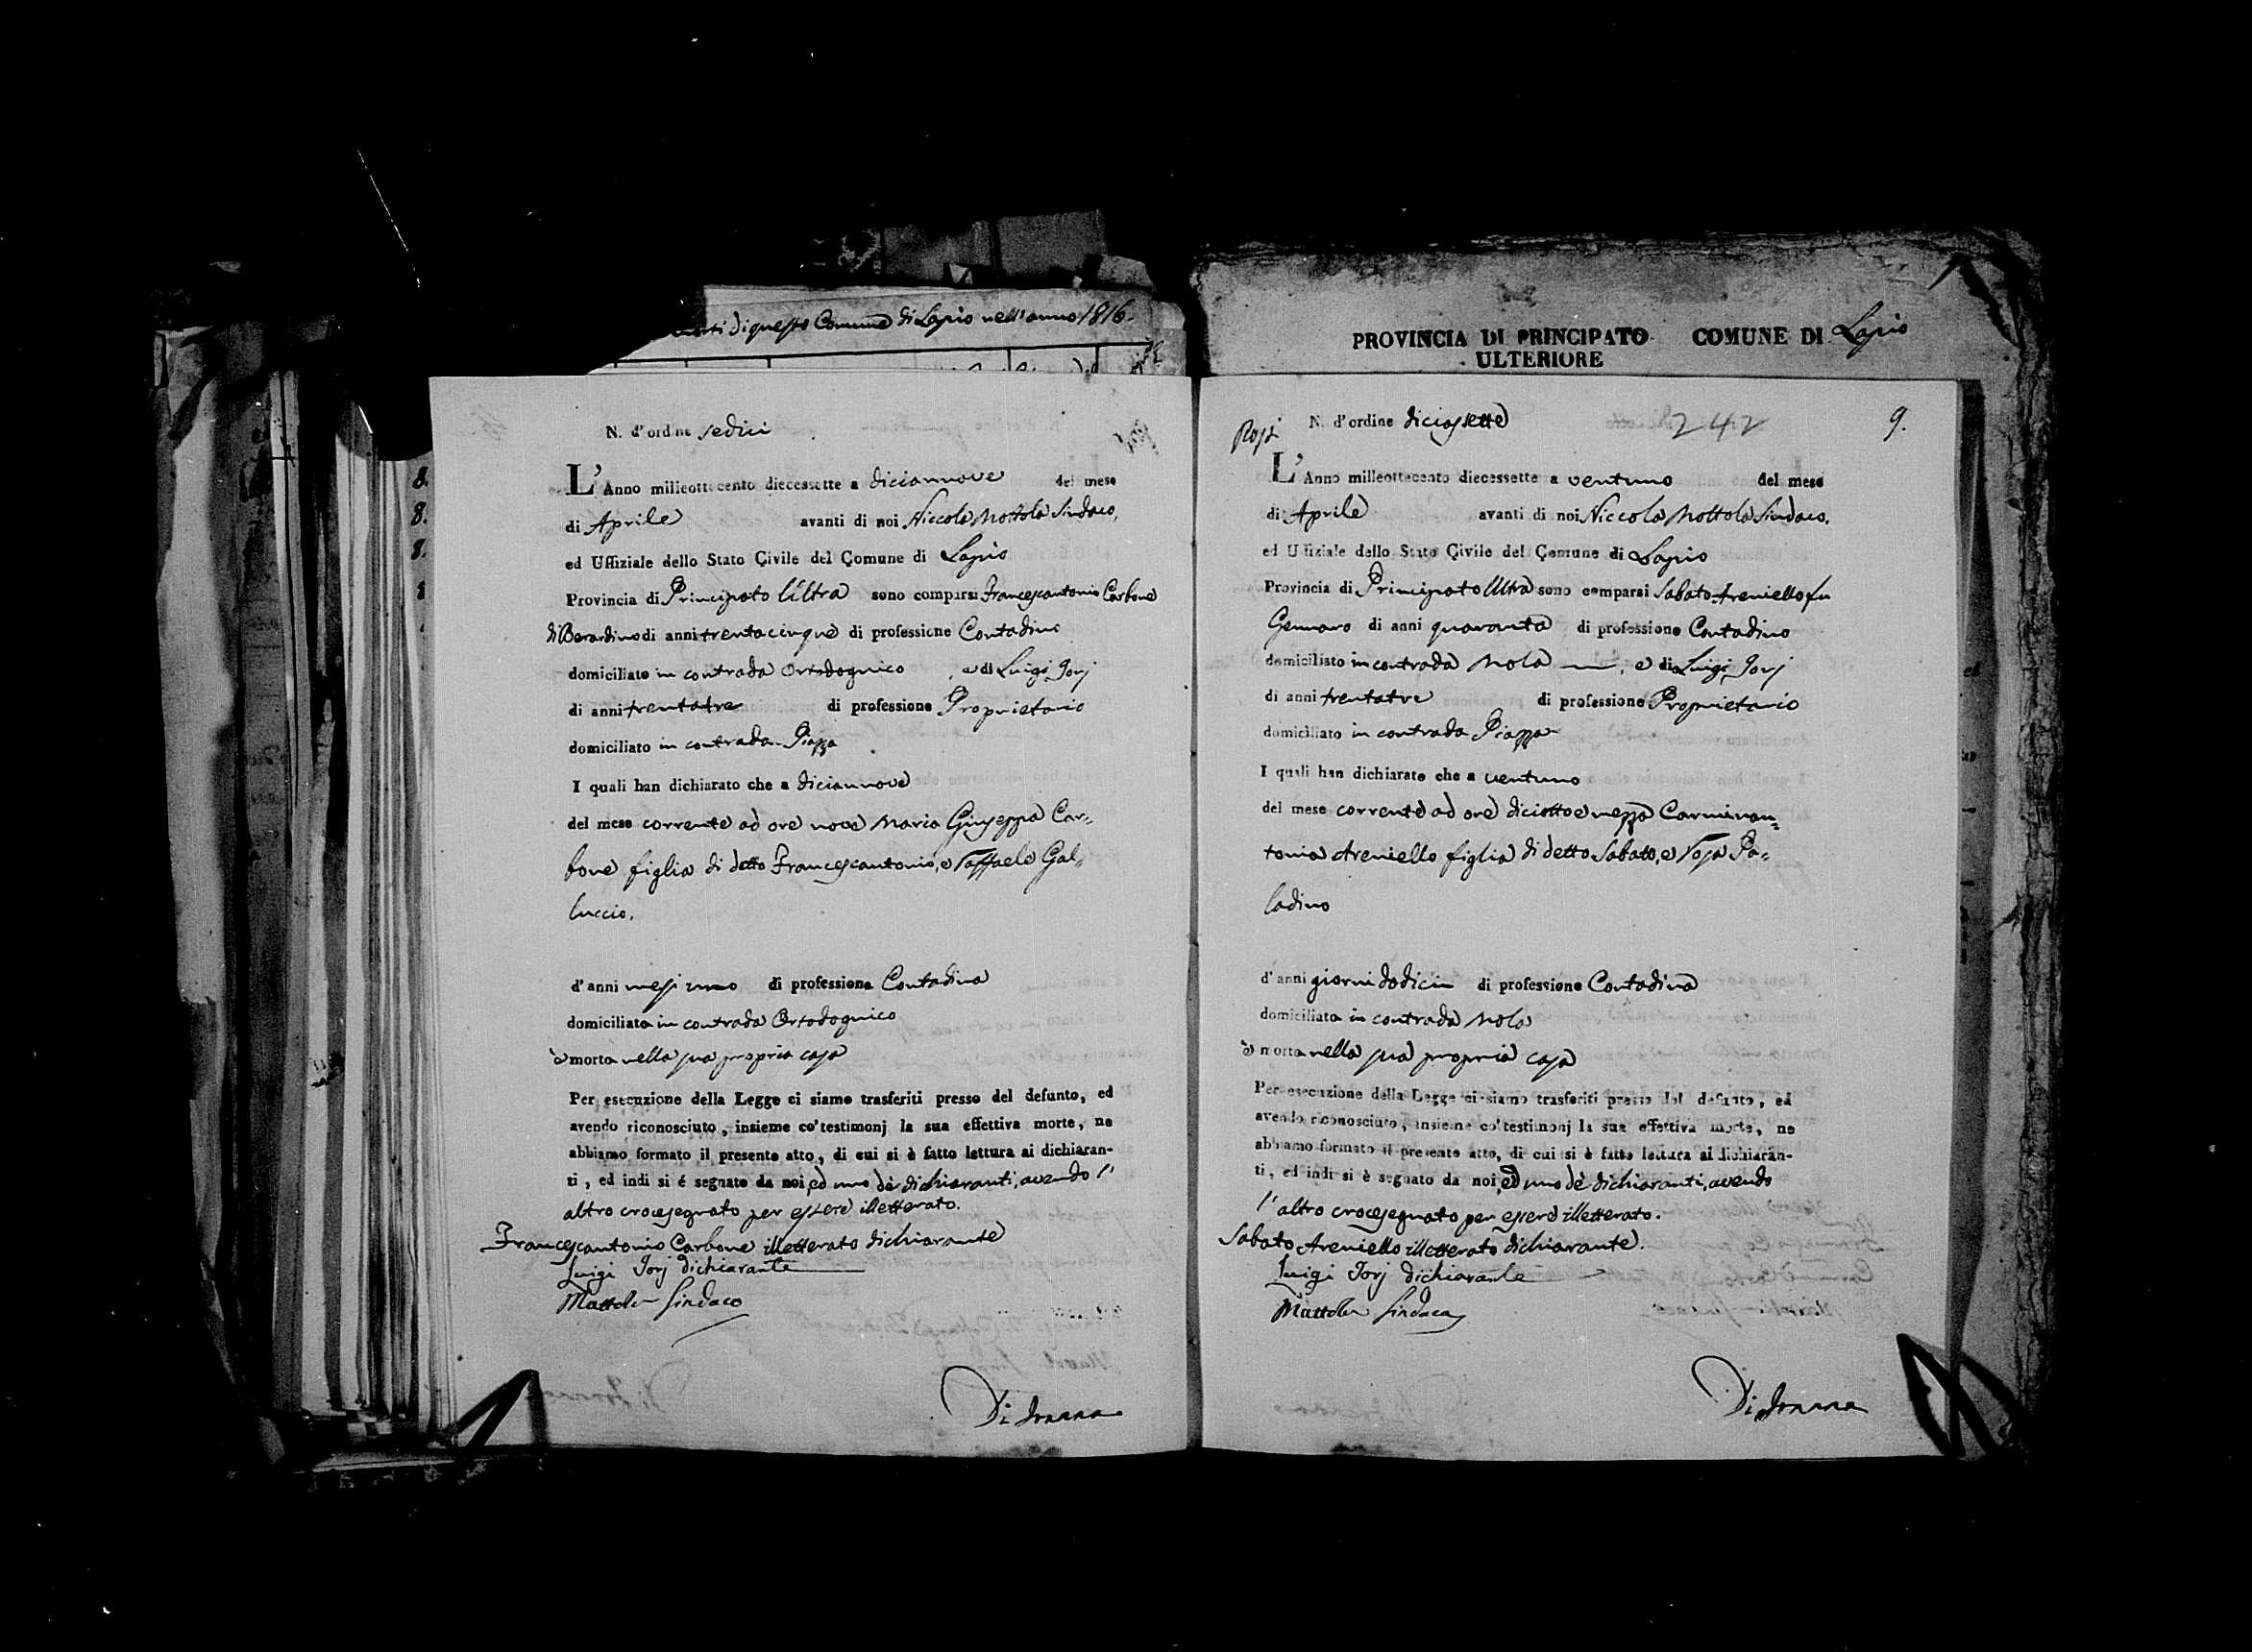 di questo Comune di Lapio nell'anno 1816.
N. d'ordine sedici
L'Anno milleottocento diecessette a diciannove del mese
di Aprile avanti di noi Niccola Mottola Sindaco,
ed Uffiziale dello Stato Civile del Comune di Lapio
Provincia di Principato Ultra sono comparsi Francescantonio Carbone
di Berardino di anni trentacinque di professione Contadino
domiciliato in contrada Ortodognico, e di Luigi Jorj
di anni trentatre di professione Proprietario
domiciliato in contrada Piazza
I quali han dichiarato che a diciannove
del mese corrente ad ore nove Maria Giuseppa Car=
bone figlia di detto Francescantonio, e Raffaele Gal=
luccio.
d'anni mesi uno di professione Contadina
domiciliata in contrada Ortodognico
è morta nella sua propria casa
Per esecuzione della Legge ci siamo trasferiti presso del defunto, ed
avendo riconosciuto, insieme co' testimonj la sua effettiva morte, ne
abbiamo formato il presente atto, di cui si è fatto lettura ai dichiaran-
ti, ed indi si é segnato da noi, ed uno de' dichiaranti, avendo l'
altro crocesegnato per essere illetterato.
Francescantonio Carbone illetterato dichiarante
Luigi Jorj dichiarante
Mattola Sindaco
PROVINCIA DI PRINCIPATO COMUNE DI Lapio
ULTERIORE
N. d'ordine diciassette 242 9.
L'Anno milleottocento diecessette a ventuno del mese
di Aprile avanti di noi Niccola Mottola Sindaco,
ed Uffiziale dello Stato Civile del Comune di Lapio
Provincia di Principato Ultra sono comparsi Sabato Areniello fu
Gennaro di anni quaranta di professione Contadino
domiciliato in contrada Mola, e di Luigi Jorj
di anni trentatre di professione Proprietario
domiciliato in contrada Piazza
I quali han dichiarato che a ventuno
del mese corrente ad ore diciotto e mezza Carminan=
tonia Areniello figlia di detto Sabato, e Rosa Pa=
ladino
d'anni giorni dodici di professione Contadina
domiciliata in contrada Mola
è morta nella sua propria casa
Per esecuzione della Legge ci siamo trasferiti presso del defunto, ed
avendo riconosciuto, insieme co' testimonj la sua effettiva morte, ne
abbiamo formato il presente atto, di cui si è fatto lettura ai dichiaran-
ti, ed indi si è segnato da noi, ed uno de' dichiaranti, avendo
l'altro crocesegnato per essere illetterato.
Sabato Areniello illetterato dichiarante.
Luigi Jorj dichiarante
Mattola Sindaco